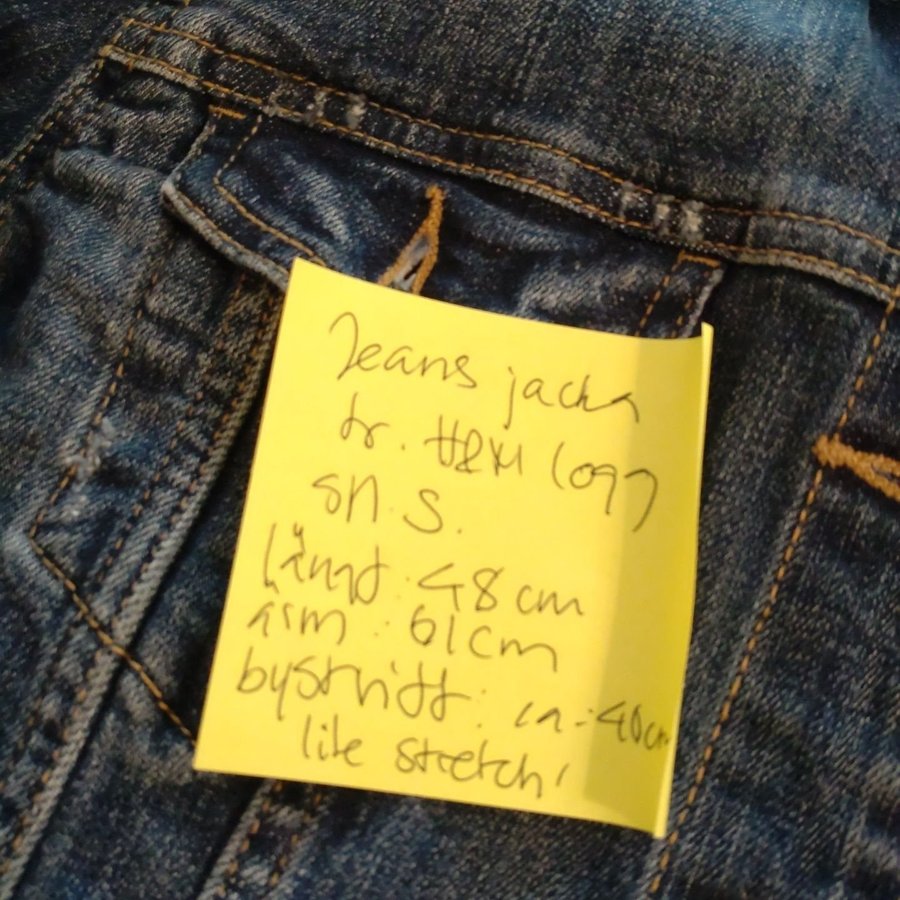 Jeans jacka
fr. H&M logg
sn. S.
längd: 48 cm
ärm: 61cm
bystvidd: ca: 40cm
lite stretch!